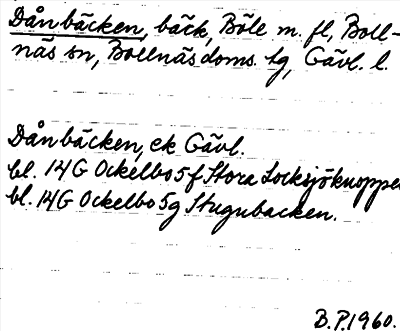 Dånbäcken, bäck, Böle m. fl, Boll-
näs sn, Bollnäs doms. tg, Gävl. l.
Dånbäcken, ek Gävl.
bl. 14G Ockelbo 5f Stora Locksjöknoppen
bl. 14G Ockelbo 5g Stugubacken.
B.P. 1960.